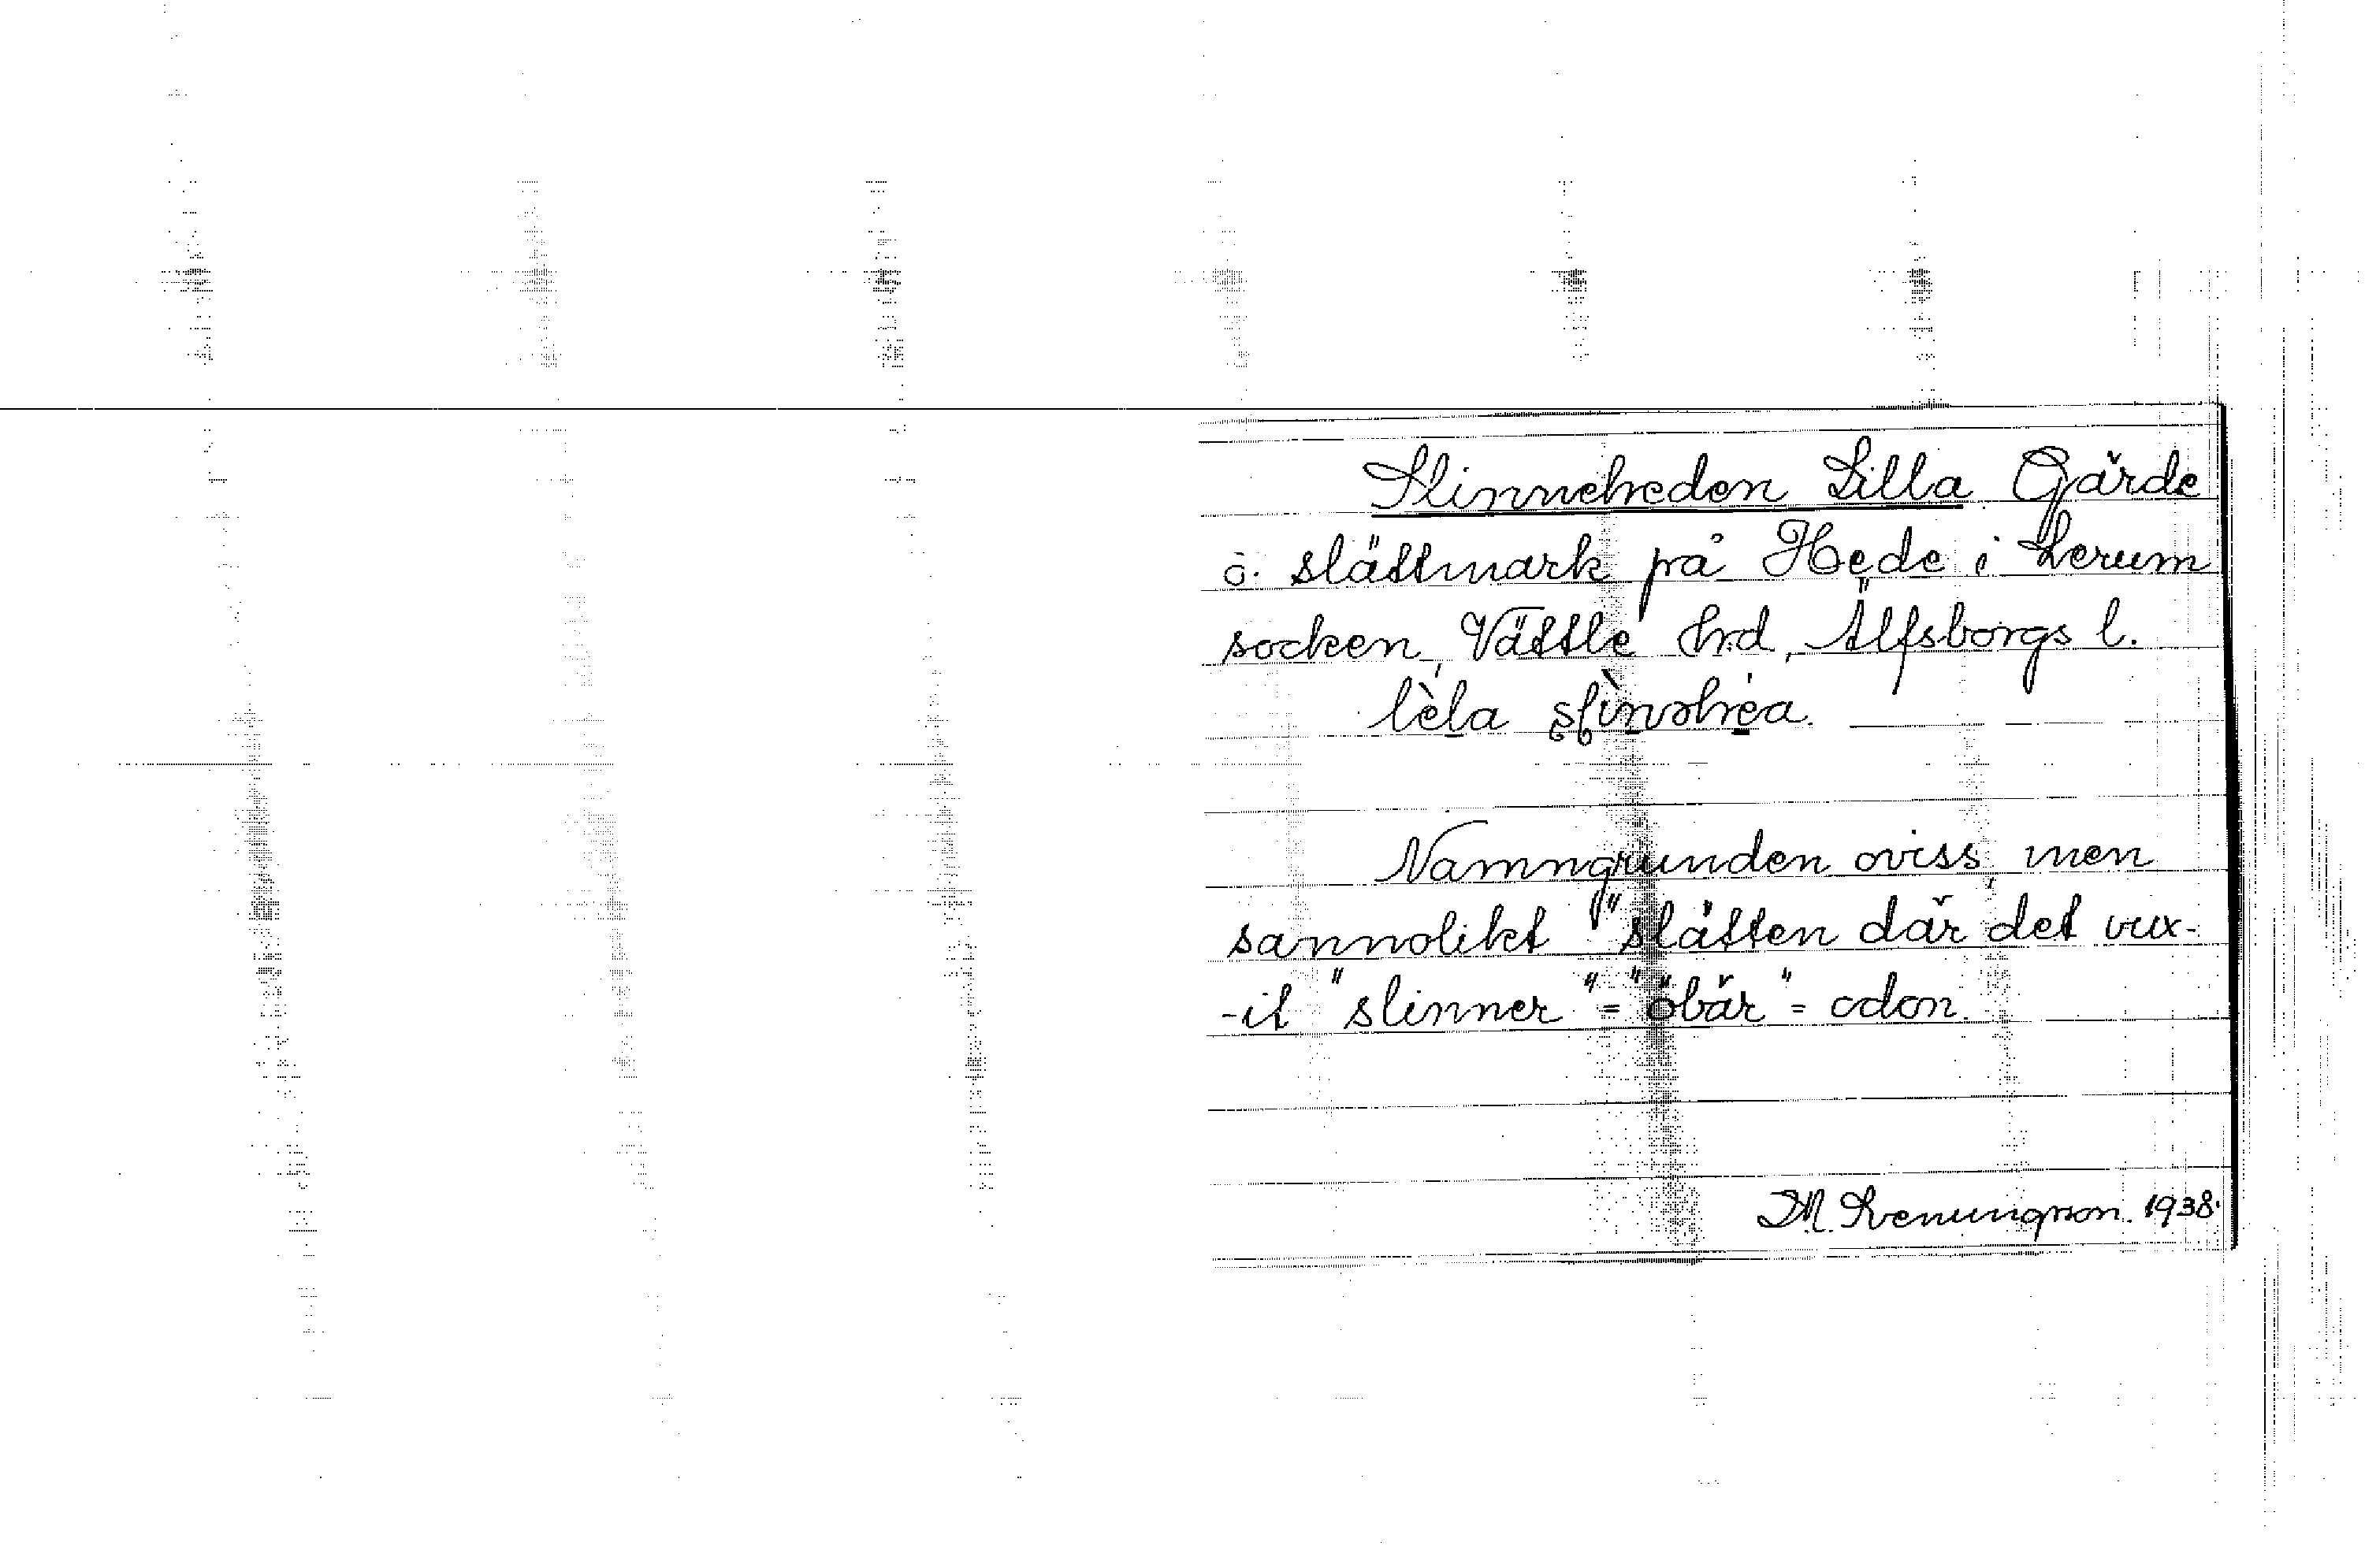 Slinneheden Lilla Gärde
o. slättmark på Hede i Lerum
socken, Vättle hrd, Älfsborgs l.
lèla
Namngrunden oviss, men
sannolikt "slätten där det vux-
-it "slinner" = "öbär" = odon.
M. Svenungson. 1938.